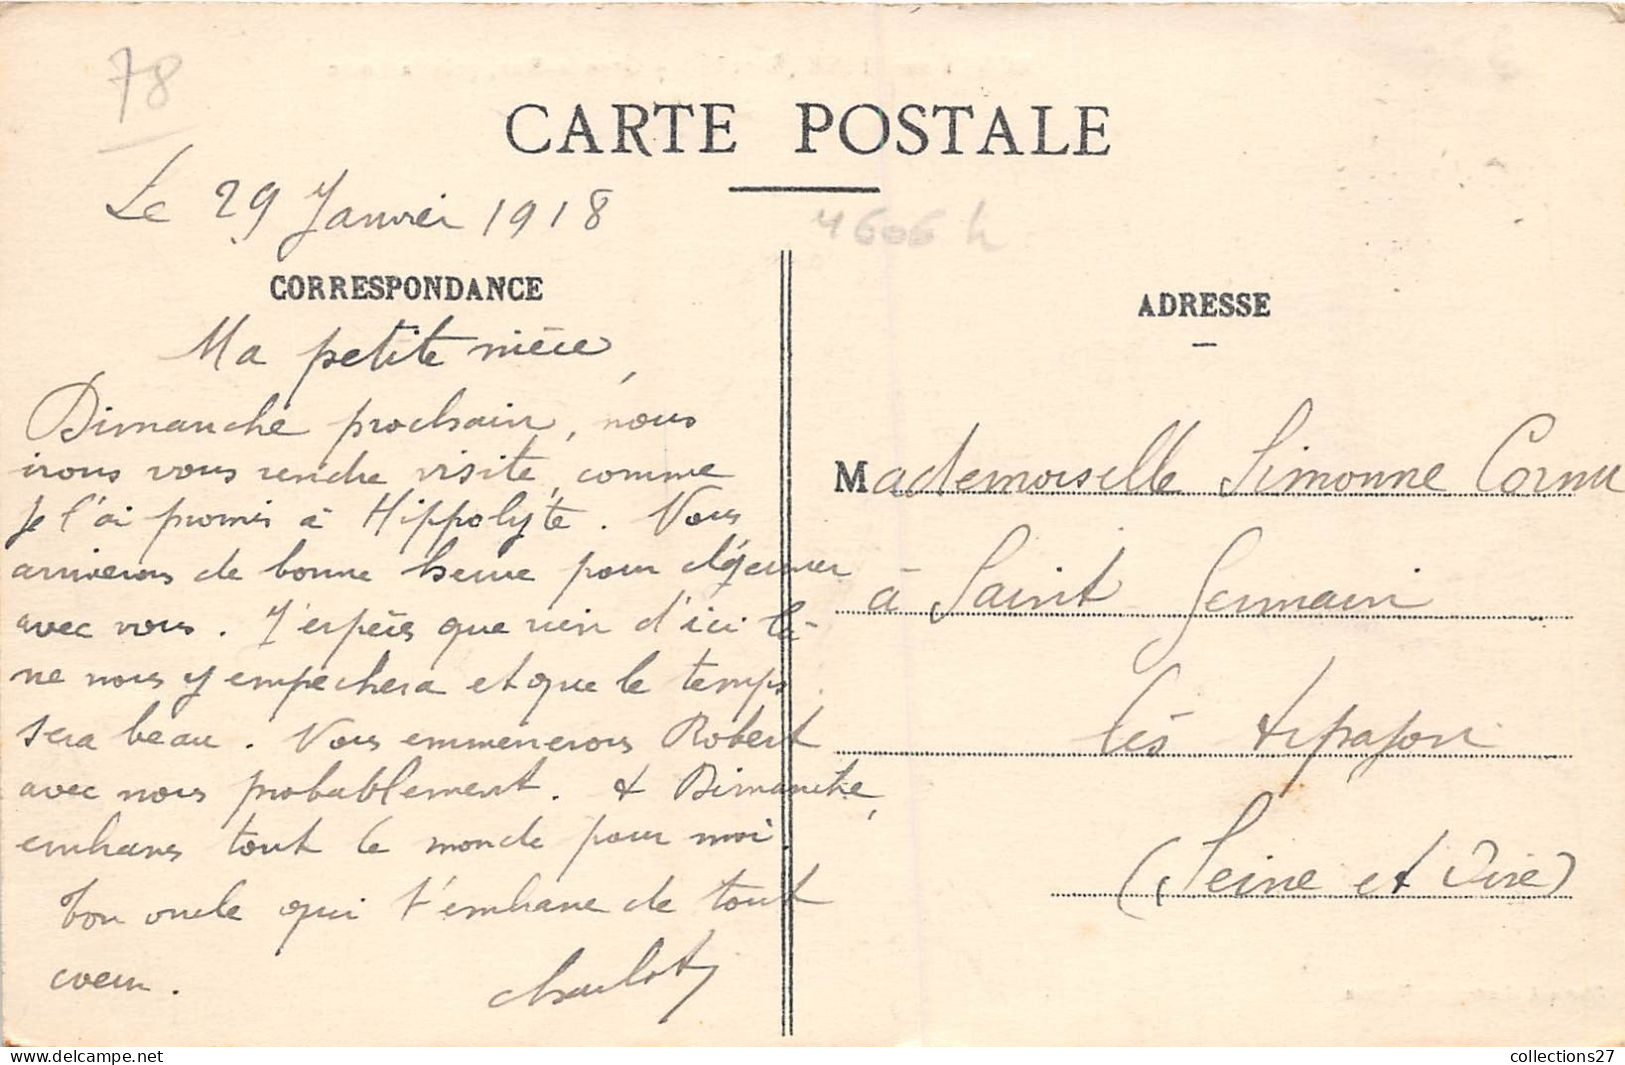 78
CARTE POSTALE
Le 29 Janvier 1918
4606 h
CORRESPONDANCE
Ma petite nièce,
Dimanche prochain, nous
irons vous rendre visite, comme
je l'ai promis à Hippolyte. Nous
arriverons de bonne heure pour déjeuner
avec vous. J'espère que rien d'ici là
ne nous y empechera et que le temps
sera beau. Nous emmènerons Robert
avec nous probablement. A Dimanche,
embrasse tout le monde pour moi.
Ton oncle qui t'embrasse de tout
coeur.
Charlot
ADRESSE
Mademoiselle Simonne Cornu
à Saint Germain
lès Arpajon
(Seine et Oise)
collections27